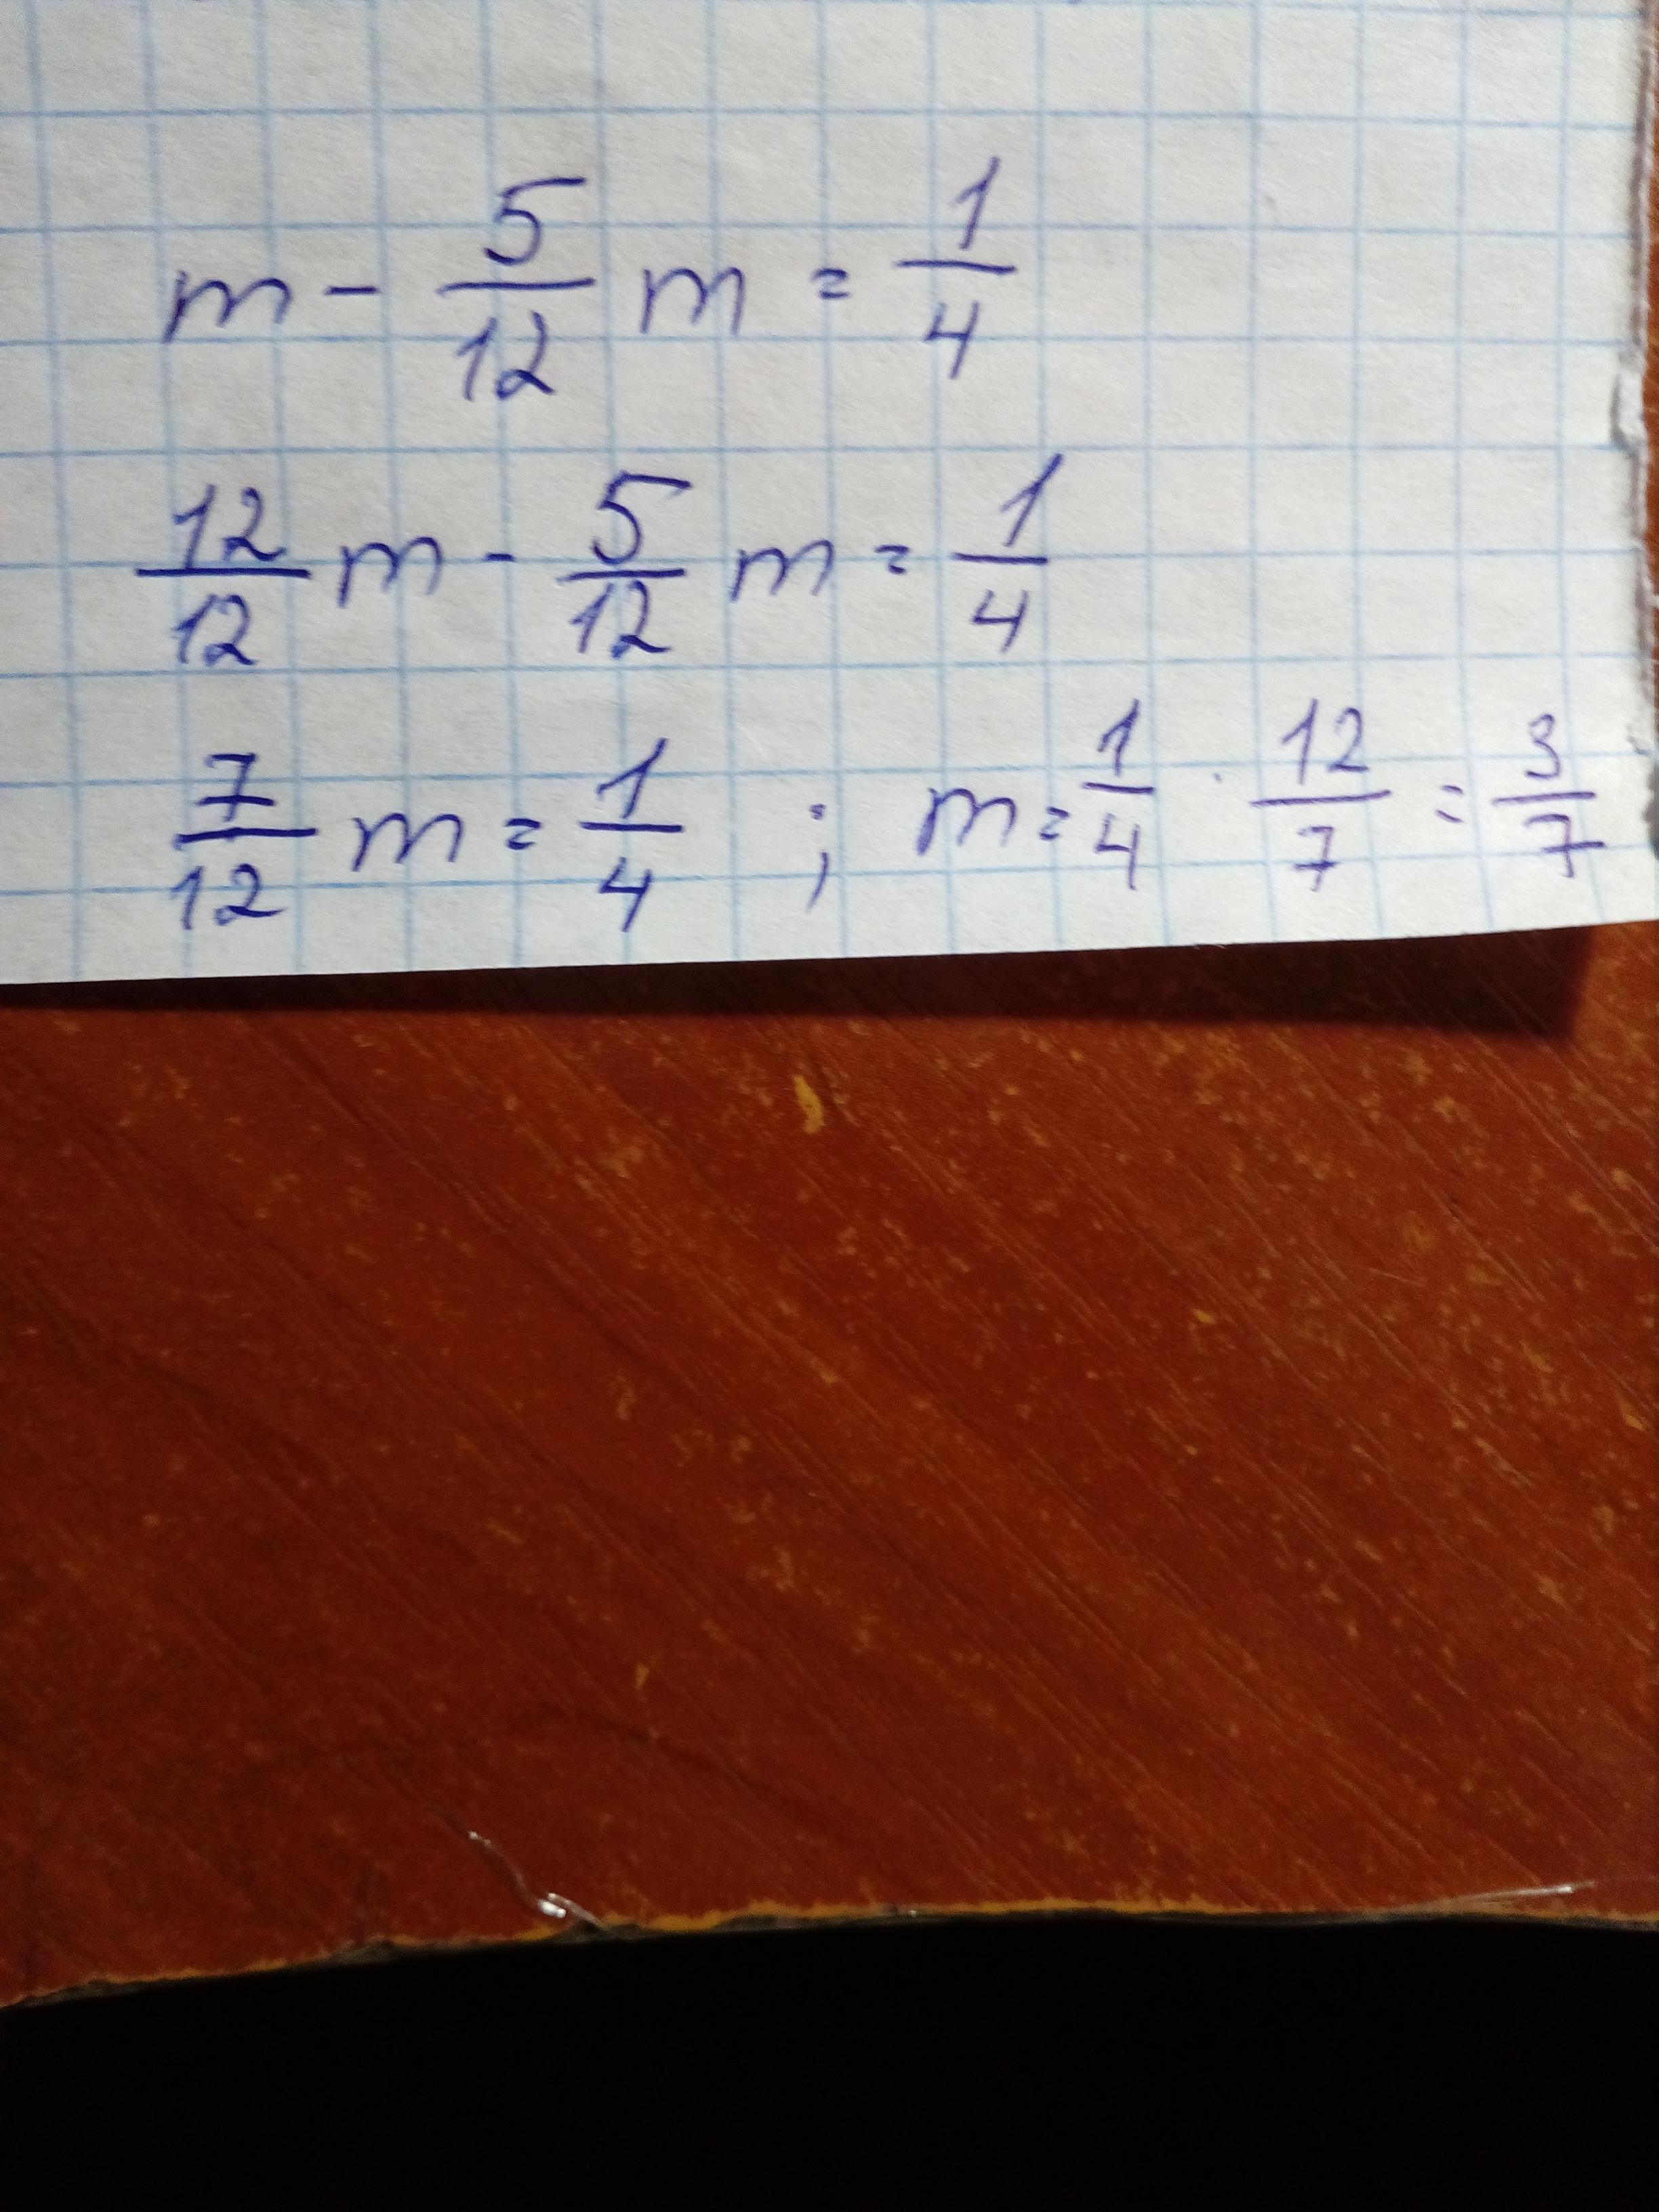 m - 5/12 m = 1/4
12/12 m - 5/12 m = 1/4
7/12 m = 1/4 ; m = 1/4 · 12/7 = 3/7